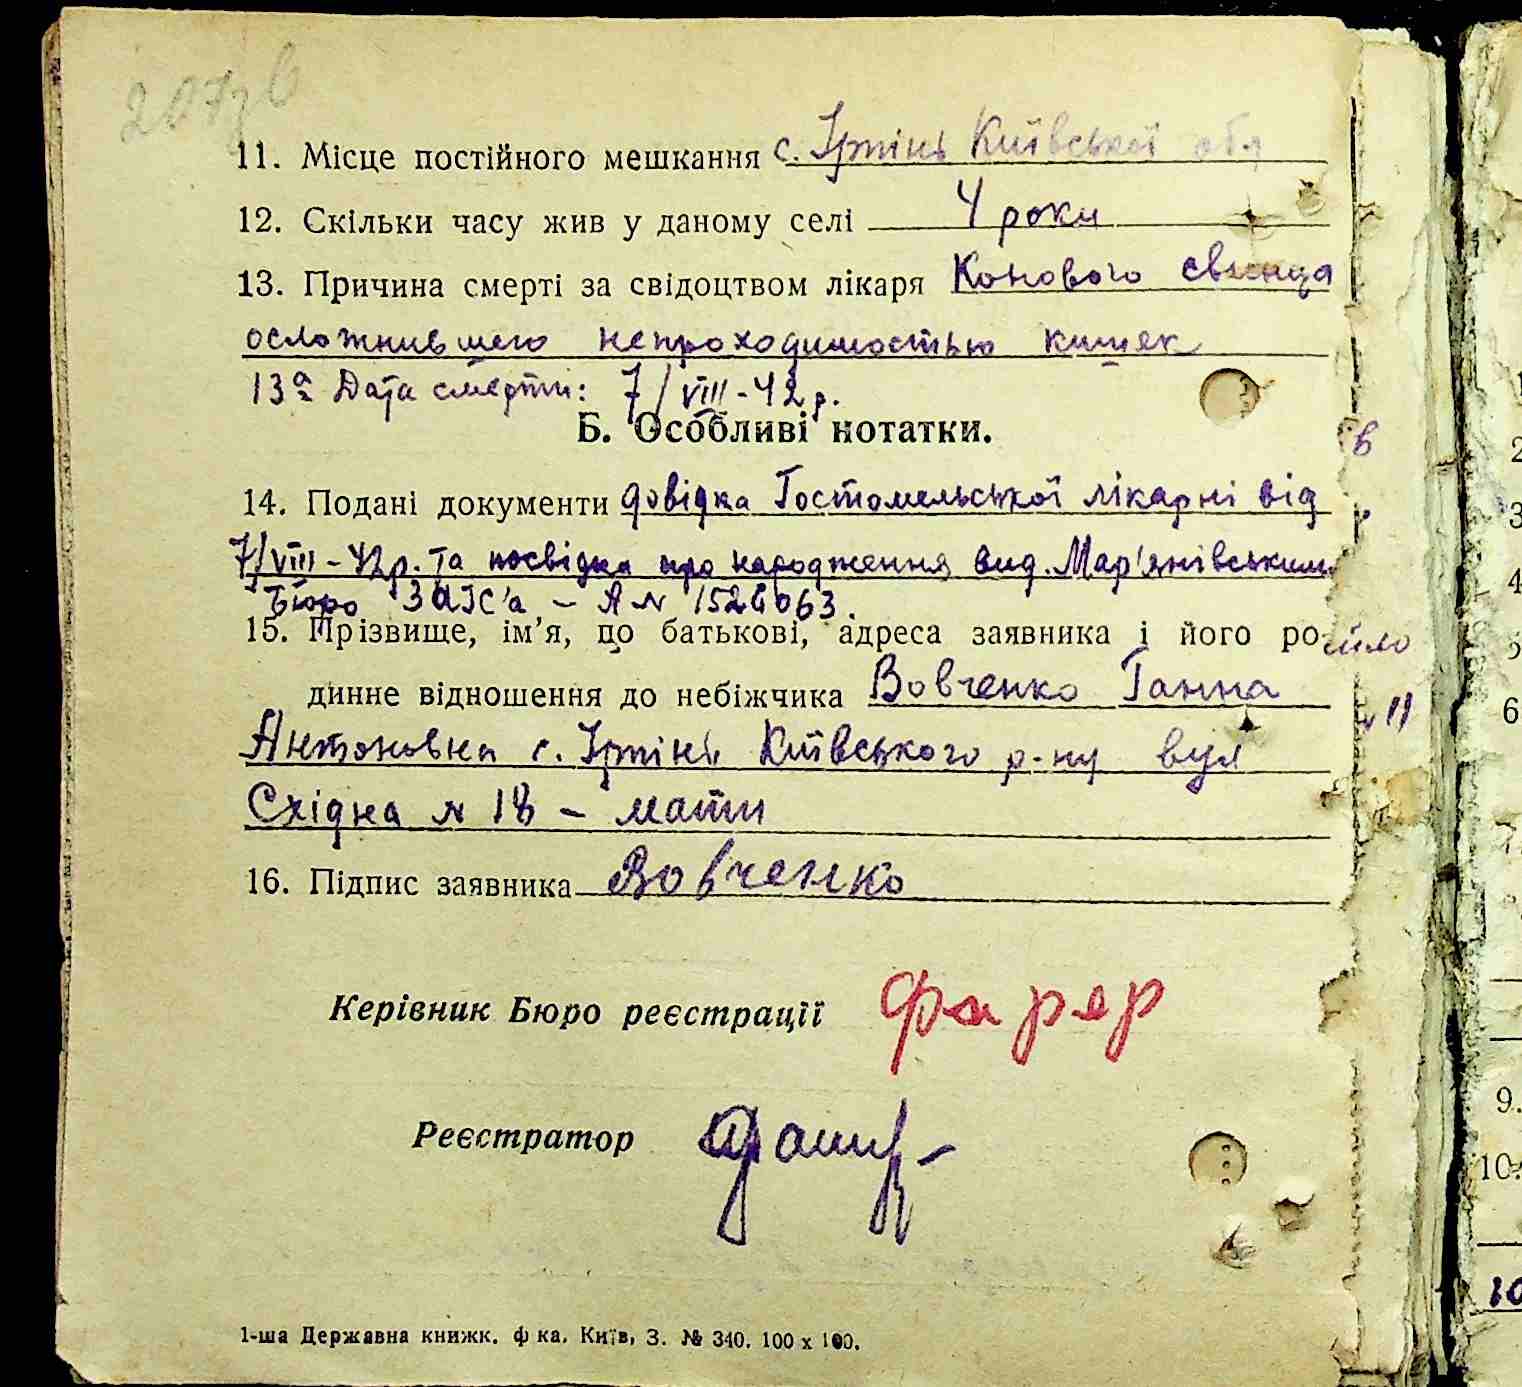 207зв
11. Місце постійного мешкання с. Ірпінь Київської обл
12. Скільки часу жив у даному селі 4 роки
13. Причина смерті за свідоцтвом лікаря
осложнившего непроходимостью кишек
13а Дата смерти: 7/VIII-42р.
Б. Особливі нотатки.
14. Подані документи довідка Гостомельської лікарні від
7/VIII-42р. та посвідка про народження вид. Мар'янівським
Бюро ЗАГС'а – А №
15. Прізвище, ім'я, по батькові, адреса заявника і його ро-
динне відношення до небіжчика Вовченко Ганна
Антоновна с. Ірпінь Київського р-ну вул
Східна № 18 – мати
16. Підпис заявника Вовченко
Керівник Бюро реєстрації
Реєстратор
1-ша Державна книжк. ф ка. Київ, З. № 340. 100 х 100.
2
3
4
5
6
7.
9.
10.